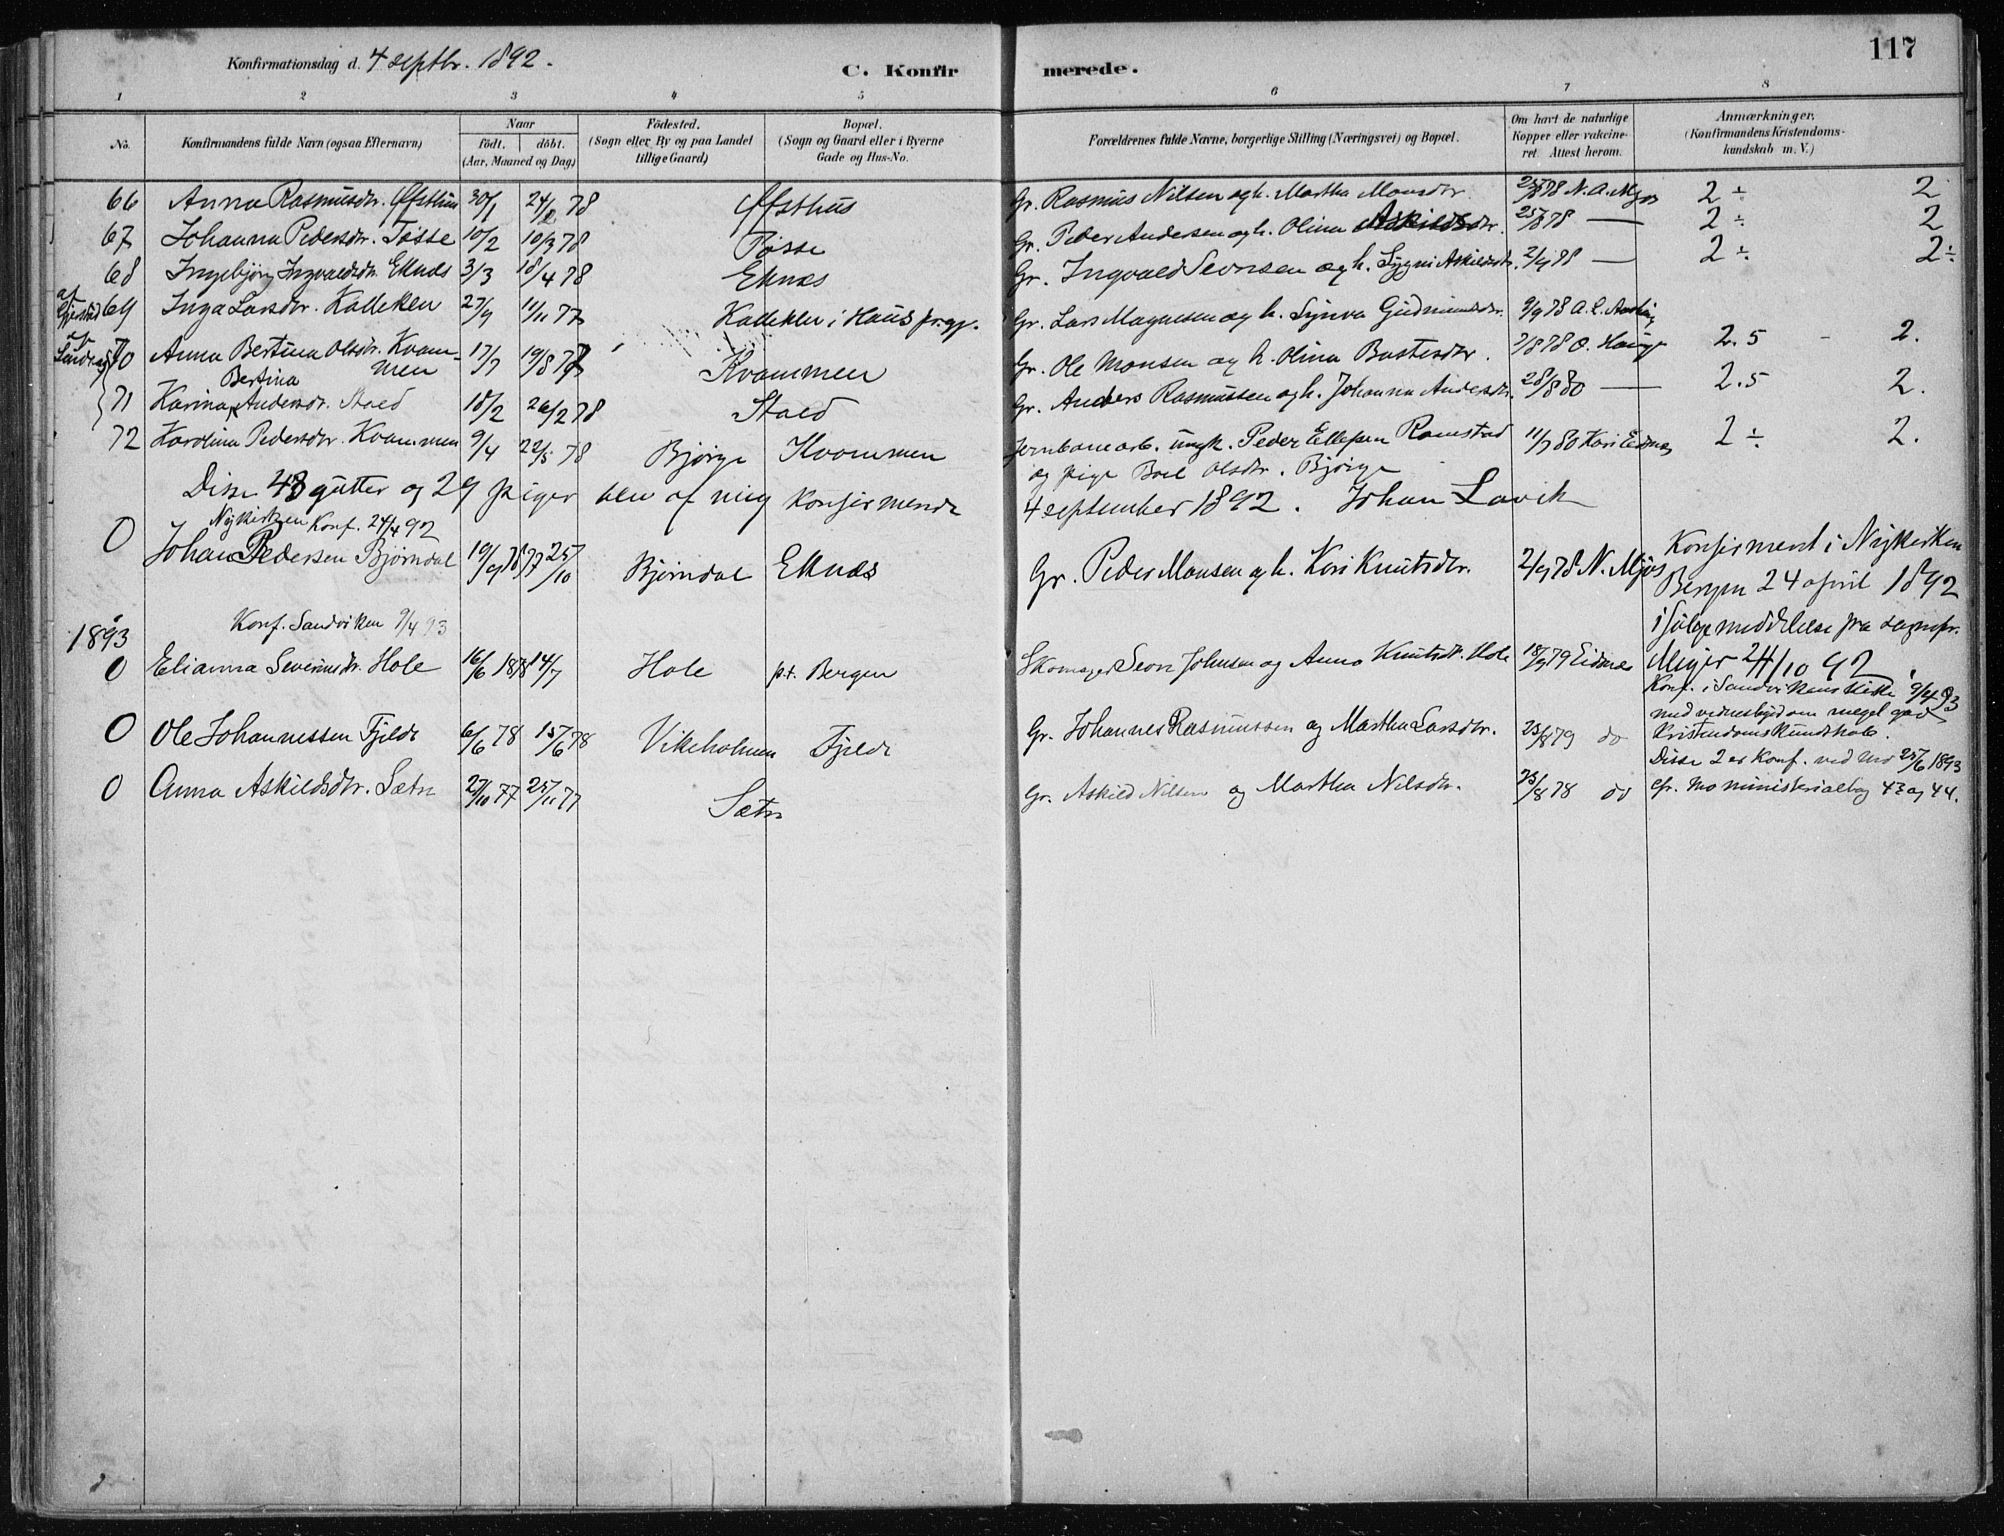 117
Konfirmationsdag d. 4 septbr. 1892.
C. Konfirmerede.
1 2 3 4 5 6 7 8
No. Konfirmandens fulde Navn (ogsaa Efternavn) Naar födt. döbt. (Aar, Maaned og Dag) Födested. (Sogn eller By og paa Landet tillige Gaard) Bopæl. (Sogn og Gaard eller i Byerne Gade og Hus-No. Forældrenes fulde Navne, borgerlige Stilling (Næringsvei) og Bopæl. Om havt de naturlige Kopper eller vakcineret. Attest herom. Anmærkninger. (Konfirmandens Kristendomskundskab m. V.)
66 Anna Rasmusdr. Øfsthus 30/1 24/ 78 Øfsthus Gr. Rasmus Nilsen og h. Martha Monsdtr 78 N. A. Mjøs 2 ÷ 2
67 Johanna Pedersdr. Tøsse 10/2 10/3 78 Tøsse Gr. Peder Andersen og h. Olina Askildsdr. 25/8 78 — 2 ÷ 2
68 Ingebjørg Ingvaldsdr. Eknæs 3/3 18/4 78 Eknæs Gr. Ingvald Sevrsen og h. Sygni Askildsdr. 2/9 78 — 2 ÷ 2÷
69 Inga Larsdtr. Kalleklev 27/9 11/11 77 Kalleklev i Haus prgj. Gr. Lars Magnesen og h. Synva Gudmundsdr. 9/9 78
70 Anna Bertina Olsdtr. Kvammen 17/7 19/8 77 Kvammen Gr. Ole Monsen og h. Olina Bastesdtr. 7/8 78 O. Hauge 2.5 - 2.
71 Karina Bertina Andersdr. Staed 18/2 26/2 78 Staed Gr. Anders Rasmussen og h. Johanna Andersdr. 28/8 80 — 2.5 2.
72 Karolina Pedersdtr. Kvammen 9/4 22/5 78 Bjørge Kvammen Jernbanearb. ungk. Peder Ellefsen Ramstad og pige Boel Olsdtr. Bjørge 11/7 80 Kari Eidnes 2 ÷ 2.
Disse 43 gutter og 29 piger blev af mig konfirmerede 4 september 1892. Johan Lavik
Nykirken Konf. 24/4 92
0 Johan Pedersen Bjørndal 19/9 77 25/10 Bjørndal Eknæs Gr. Peder Monsen og h. Kari Knutsdtr. 2/9 78 N. Mjøs Konfirmert i Nykirken Bergen 24 april 1892 ifølge meddelelse fra sognepr. Meyer 24/10 92.
1893 Konf. Sandviken 9/4 93
0 Elianna Severinsdtr. Hole 16/6 1878 14/7 Hole p.t. Bergen Skomager Sevr Johnsen og Anna Knutsdr. Hole 18/9 79 Eidnes Konf. i Sandvikens kirke 9/4 93 med vidnesbyrd om meget god Kristendomskundskab.
0 Ole Johannessen Fjelde 6/6 78 15/6 78 Vikeholmen Fjelde Gr. Johannes Rasmussen og Martha Larsdtr. 23/8 79 do Disse 2 er konf. ved Mo 25/6 1893
0 Anna Askildsdtr. Sætre 27/10 77 25/11 77 Sætre Gr. Askild Nilsen og Martha Nilsdtr. 23/8 78 do cfr. Mo ministerialbog 43 og 44.